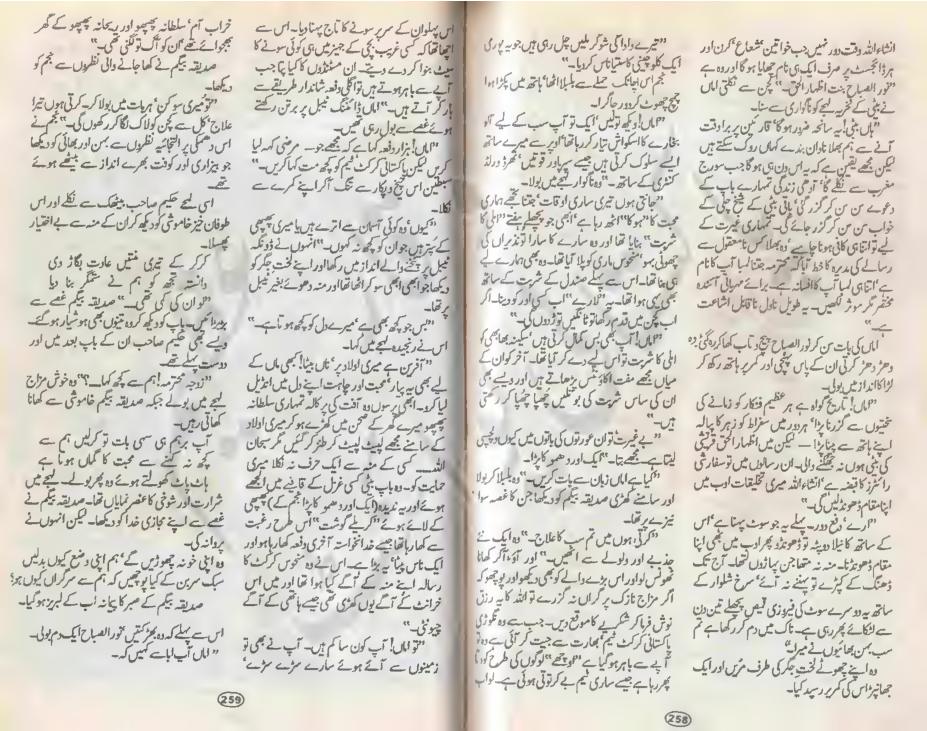 انشاءاللہ وقت دور نہیں جب خواتین، شعاع، کرن اور
ہر ڈائجسٹ پر صرف ایک ہی نام چھایا ہوگا اور وہ ہے
نور الصباح بنت اظہار الحق۔" کچن سے نکلتی اماں
نے بیٹی کے فخریہ لہجے کو ناگواری سے سنا۔
"ہاں بیٹی! یہ سانحہ ضرور ہوگا، قارئین پر برا وقت
آنے سے ہم بھلا ناتواں بندے کہاں روک سکتے ہیں
لیکن مجھے یقین ہے کہ یہ اس دن ہی ہوگا جب سورج
مغرب سے نکلے گا، آدمی زندگی تمہارے باپ کے
دعوے سن سن کر گزر گئی، باقی بیٹی کے شیخ چلی کے
خواب سن کر گزر جائے گی۔ تمہاری غیرت کے
لیے تو اتنا ہی کافی ہونا چاہیے، وہ بھلا کس نامعقول سے
رسالے کی مدیرہ کا خط آیا کہ محترمہ جتنا لمبا آپ کا نام
ہے، اتنا ہی لمبا آپ کا افسانہ ہے۔ برائے مہربانی آئندہ
مختصر مگر موثر لکھیں۔ یہ طویل ناول ناقابل اشاعت
ہے۔"
اماں کی بات سن کر نور الصباح پیچ و تاب کھا کر رہ گئی، وہ
دھڑ دھڑ کرتی ان کے پاس پہنچی اور کمر پر ہاتھ رکھ کر
لڑاکا انداز میں بولی۔
"اماں! تاریخ گواہ ہے ہر عظیم فنکار کو زمانے کی
سختیوں سے گزرنا پڑا، ہر دور میں سقراط کو زہر کا پیالہ
اپنے ہاتھ سے پینا پڑا۔ لیکن میں اظہار الحق قریشی
کی بیٹی ہوں نہ جھکنے والی۔ ان رسالوں میں تو سفارشی
رائٹرز کا قبضہ ہے، انشاءاللہ میری تخلیقات ادب میں
اپنا مقام ڈھونڈ لیں گی۔"
"ارے، دفع دور۔ پہلے یہ جو سوٹ پہنا ہے، اس
کے ساتھ کا نیلا دوپٹہ تو ڈھونڈو پھر ادب میں بھی اپنا
مقام ڈھونڈنا۔ منہ نہ متھا جن پہاڑوں لتھا۔ آج تک
ڈھنگ کے کپڑے تو پہننے نہ آئے، سرخ شلوار کے
ساتھ یہ دوسرے سوٹ کی فیروزی قمیص پچھلے تین دن
سے لٹکائے پھر رہی ہے۔ ناک میں دم کر رکھا ہے تم
سب بہن بھائیوں نے میرا۔"
وہ اپنے چھوٹے لخت جگر کی طرف مڑیں اور ایک
جھانپڑ اس کی کمر پر رسید کیا۔
258
"تیرے دادا کی شوگر ملیں چل رہی ہیں جو یہ پوری
ایک کلو چینی کا ستیاناس کر دیا۔"
نجم اس اچانک حملے سے بلبلا اٹھا، ہاتھ میں پکڑا ہوا
چمچ چھوٹ کر دور جا گرا۔
"اماں! دیکھ تو لیں، ایک تو آپ سب کے لیے آلو
بخارے کا اسکواش تیار کر رہا تھا، اوپر سے میرے ساتھ
ایسے سلوک کرتی ہیں جیسے سپر پاور قوتیں، تھرڈ ورلڈ
کنٹری کے ساتھ۔" وہ ناگوار لہجے میں بولا۔
"جانتی ہوں تیری ساری اوقات، جتنا تجھے ہماری
محبت کا "ہوکا" اٹھ رہا ہے، ابھی جو پچھلے ہفتے "املی کا
شربت" بنایا تھا اور وہ سارے کا سارا نو نذیراں کی
چھوٹی بہو، منحوس ماری کو پلا آیا تھا۔ وہ بھی ہمارے لیے
ہی بنا تھا۔ اس سے پہلے صندل کے شربت کے ساتھ
بھی یہی ہوا تھا۔ اب کسی اور کو دینا۔ اگر
اب کچن میں قدم رکھا تو ٹانگیں توڑ دوں گی۔"
"اماں! آپ بھی بس کمال کرتی ہیں، سکینہ بھابھی کو
املی کا شربت تو اس لیے دے کر آیا تھا۔ آخر کو ان کے
میاں مجھے مفت اکاؤنٹس پڑھاتے ہیں اور ویسے بھی
ان کی ساس شربت کی بوتلیں چھپا چھپا کر رکھتی
ہیں۔"
"بے غیرت! تو ان عورتوں کی باتوں میں کیوں دلچسپی
لیتا ہے۔ مجھے بتا۔" ایک اور دھموکا پڑا۔
"اماں! ہے اماں زبان سے بات کریں۔" وہ بلبلا کر بولا
اور سامنے کھڑی صدیقہ بیگم کو دیکھا جن کا غصہ سوا
نیزے پر تھا۔
"کرتی ہوں میں تم سب کا علاج۔" وہ ایک نئے
جذبے اور ولولے سے اٹھیں۔ "اور آؤ، آ کر کھانا
ٹھونس لو اور اس بڑے والے کو بھی دیکھو اور پوچھو کہ
اگر مزاج نازک پر گراں نہ گزرے تو اللہ کا یہ رزق
نوش فرما کر شکریے کا موقع دیں۔ جب سے وہ نگوڑی
پاکستانی کرکٹ ٹیم، بھارت سے جیت کر آئی ہے، وہ تو
آپے سے باہر ہو گیا ہے "اوچھے" لوگوں کی طرح کودتا
پھر رہا ہے جیسے ساری ٹیم بے کر توتی ہوئی ہے۔ لو اب
اس پہلوان کے سر پر سونے کا تاج پہنا دیا۔ اس سے
اچھا تھا کہ کسی غریب بچی کے جہیز میں ہی کوئی سونے کا
سیٹ بنوا کر دے دیتے۔ ان مسٹنڈوں کا کیا پتا جب
آپے سے باہر ہوتے ہیں تو اگلی دفعہ شاندار طریقے سے
ہار کر آتے ہیں۔" اماں ڈائننگ ٹیبل پر برتن رکھتے
ہوئے غصے سے بول رہی تھیں۔
"اماں! ہزار دفعہ کہا ہے کہ مجھے جو مرضی کہہ لیا
کریں لیکن پاکستانی کرکٹ ٹیم کو کچھ مت کہا کریں۔"
سبطین اس چیخ و پکار سے تنگ آ کر اپنے کمرے سے
نکلا۔
"کیوں، وہ کوئی آسمان سے اترے ہیں یا میری پھپھی
کے بیٹے ہیں جو ان کو کچھ نہ کہوں۔" انہوں نے ڈونگہ
ٹیبل پر پٹخنے والے انداز میں رکھا اور اپنے لخت جگر کو
دیکھا جو ابھی ابھی سو کر اٹھا تھا اور منہ دھوئے بغیر ٹیبل
پر تھا۔
"بس جو کچھ بھی ہے، میرے دل کو کچھ ہوتا ہے۔"
اس نے رنجیدہ لہجے میں کہا۔
"آفرین ہے میری اولاد پر، ہاں بیٹا! کبھی ماں کے
لیے بھی یہ پیار، محبت اور چاہت اپنے دل میں انڈیل
لیا کرو۔ ابھی پرسوں وہ آفت کی پرکالہ تمہاری سلطانہ
پھپھو میرے گھر کے صحن میں کھڑے ہو کر میری اولاد
کے سامنے مجھے لپیٹ لپیٹ کر طنز کر گئیں، مگر سبحان
اللہ کسی کے منہ سے ایک حرف نہ نکلا میری
حمایت کو۔ وہ باپ بیٹی کسی غزل کے قافیے میں الجھے
ہوئے اور یہ ندیدہ (ایک اور دھموکا پڑا نجم کے) پھپھی
کے لائے ہوئے "کریلے گوشت" اس طرح رغبت
سے کھا رہا تھا جیسے خدانخواستہ آخری دفعہ کھا رہا ہو اور
ایک ناس پیٹا، یہ بڑا ہے۔ اس نے وہ منحوس کرکٹ کا
رسالہ اپنے منہ کے آگے کیا ہوا تھا اور میں اس
خرانٹ کے آگے یوں کھڑی تھی جیسے ہاتھی کے آگے
چیونٹی۔"
"تو اماں! آپ کون سا کم ہیں۔ آپ نے بھی تو
زمینوں سے آئے ہوئے سارے سڑے سڑے،
259
خراب آم، سلطانہ پھپھو اور ریحانہ پھپھو کے گھر
بھجوائے تھے، ان کو آگ تو لگنی تھی۔"
صدیقہ بیگم نے کھا جانے والی نظروں سے نجم کو
دیکھا۔
"تو میری سوکن، ہر بات میں بولا کر۔ کرتی ہوں تیرا
علاج، کل سے کچن کو لاک لگا کر رکھوں گی۔" نجم نے
اس دھمکی پر التجائیہ نظروں سے بہن اور بھائی کو دیکھا
جو بیزاری اور کوفت بھرے انداز سے بیٹھے ہوئے
تھے۔
اسی لمحے حکیم صاحب بیٹھک سے نکلے اور اس
طوفان خیز خاموشی کو دیکھ کر ان کے منہ سے بے اختیار
پھسلا۔
کر کر کے تیری منتیں عادت بگاڑ دی
دانستہ تجھ کو ہم نے ستمگر بنا دیا
"تو ان کی کمی تھی۔" صدیقہ بیگم غصے سے
بڑبڑائیں۔ باپ کو دیکھ کر وہ تینوں بھی ہوشیار ہو گئے۔
ویسے بھی حکیم صاحب ان کے باپ بعد میں اور
دوست پہلے تھے۔
"زوجہ محترمہ! ہم سے کچھ کہا۔؟" وہ خوش مزاج
لہجے میں بولے جبکہ صدیقہ بیگم خاموشی سے کھانا
کھاتی رہیں۔
آپ برہم ہی سہی بات تو کر لیں ہم سے
کچھ نہ کہنے سے محبت کا گماں ہوتا ہے
ہاٹ پاٹ کھولتے ہوئے وہ پھر بولے۔ لہجے میں
شرارت اور شوخی کا عنصر نمایاں تھا۔ صدیقہ بیگم نے
غصے سے اپنے مجازی خدا کو دیکھا۔ لیکن انہوں نے
پروا نہ کی۔
وہ اپنی خو نہ چھوڑیں گے، ہم اپنی وضع کیوں بدلیں
سبک سر بن کے کیا پوچھیں کہ ہم سے سرگراں کیوں ہو؟
صدیقہ بیگم کے صبر کا پیمانہ لب کے لبریز ہو گیا۔
اس سے پہلے کہ وہ بھڑکتیں، نور الصباح ایک دم بولی۔
"اماں آپ ابا سے کہیں کہ۔